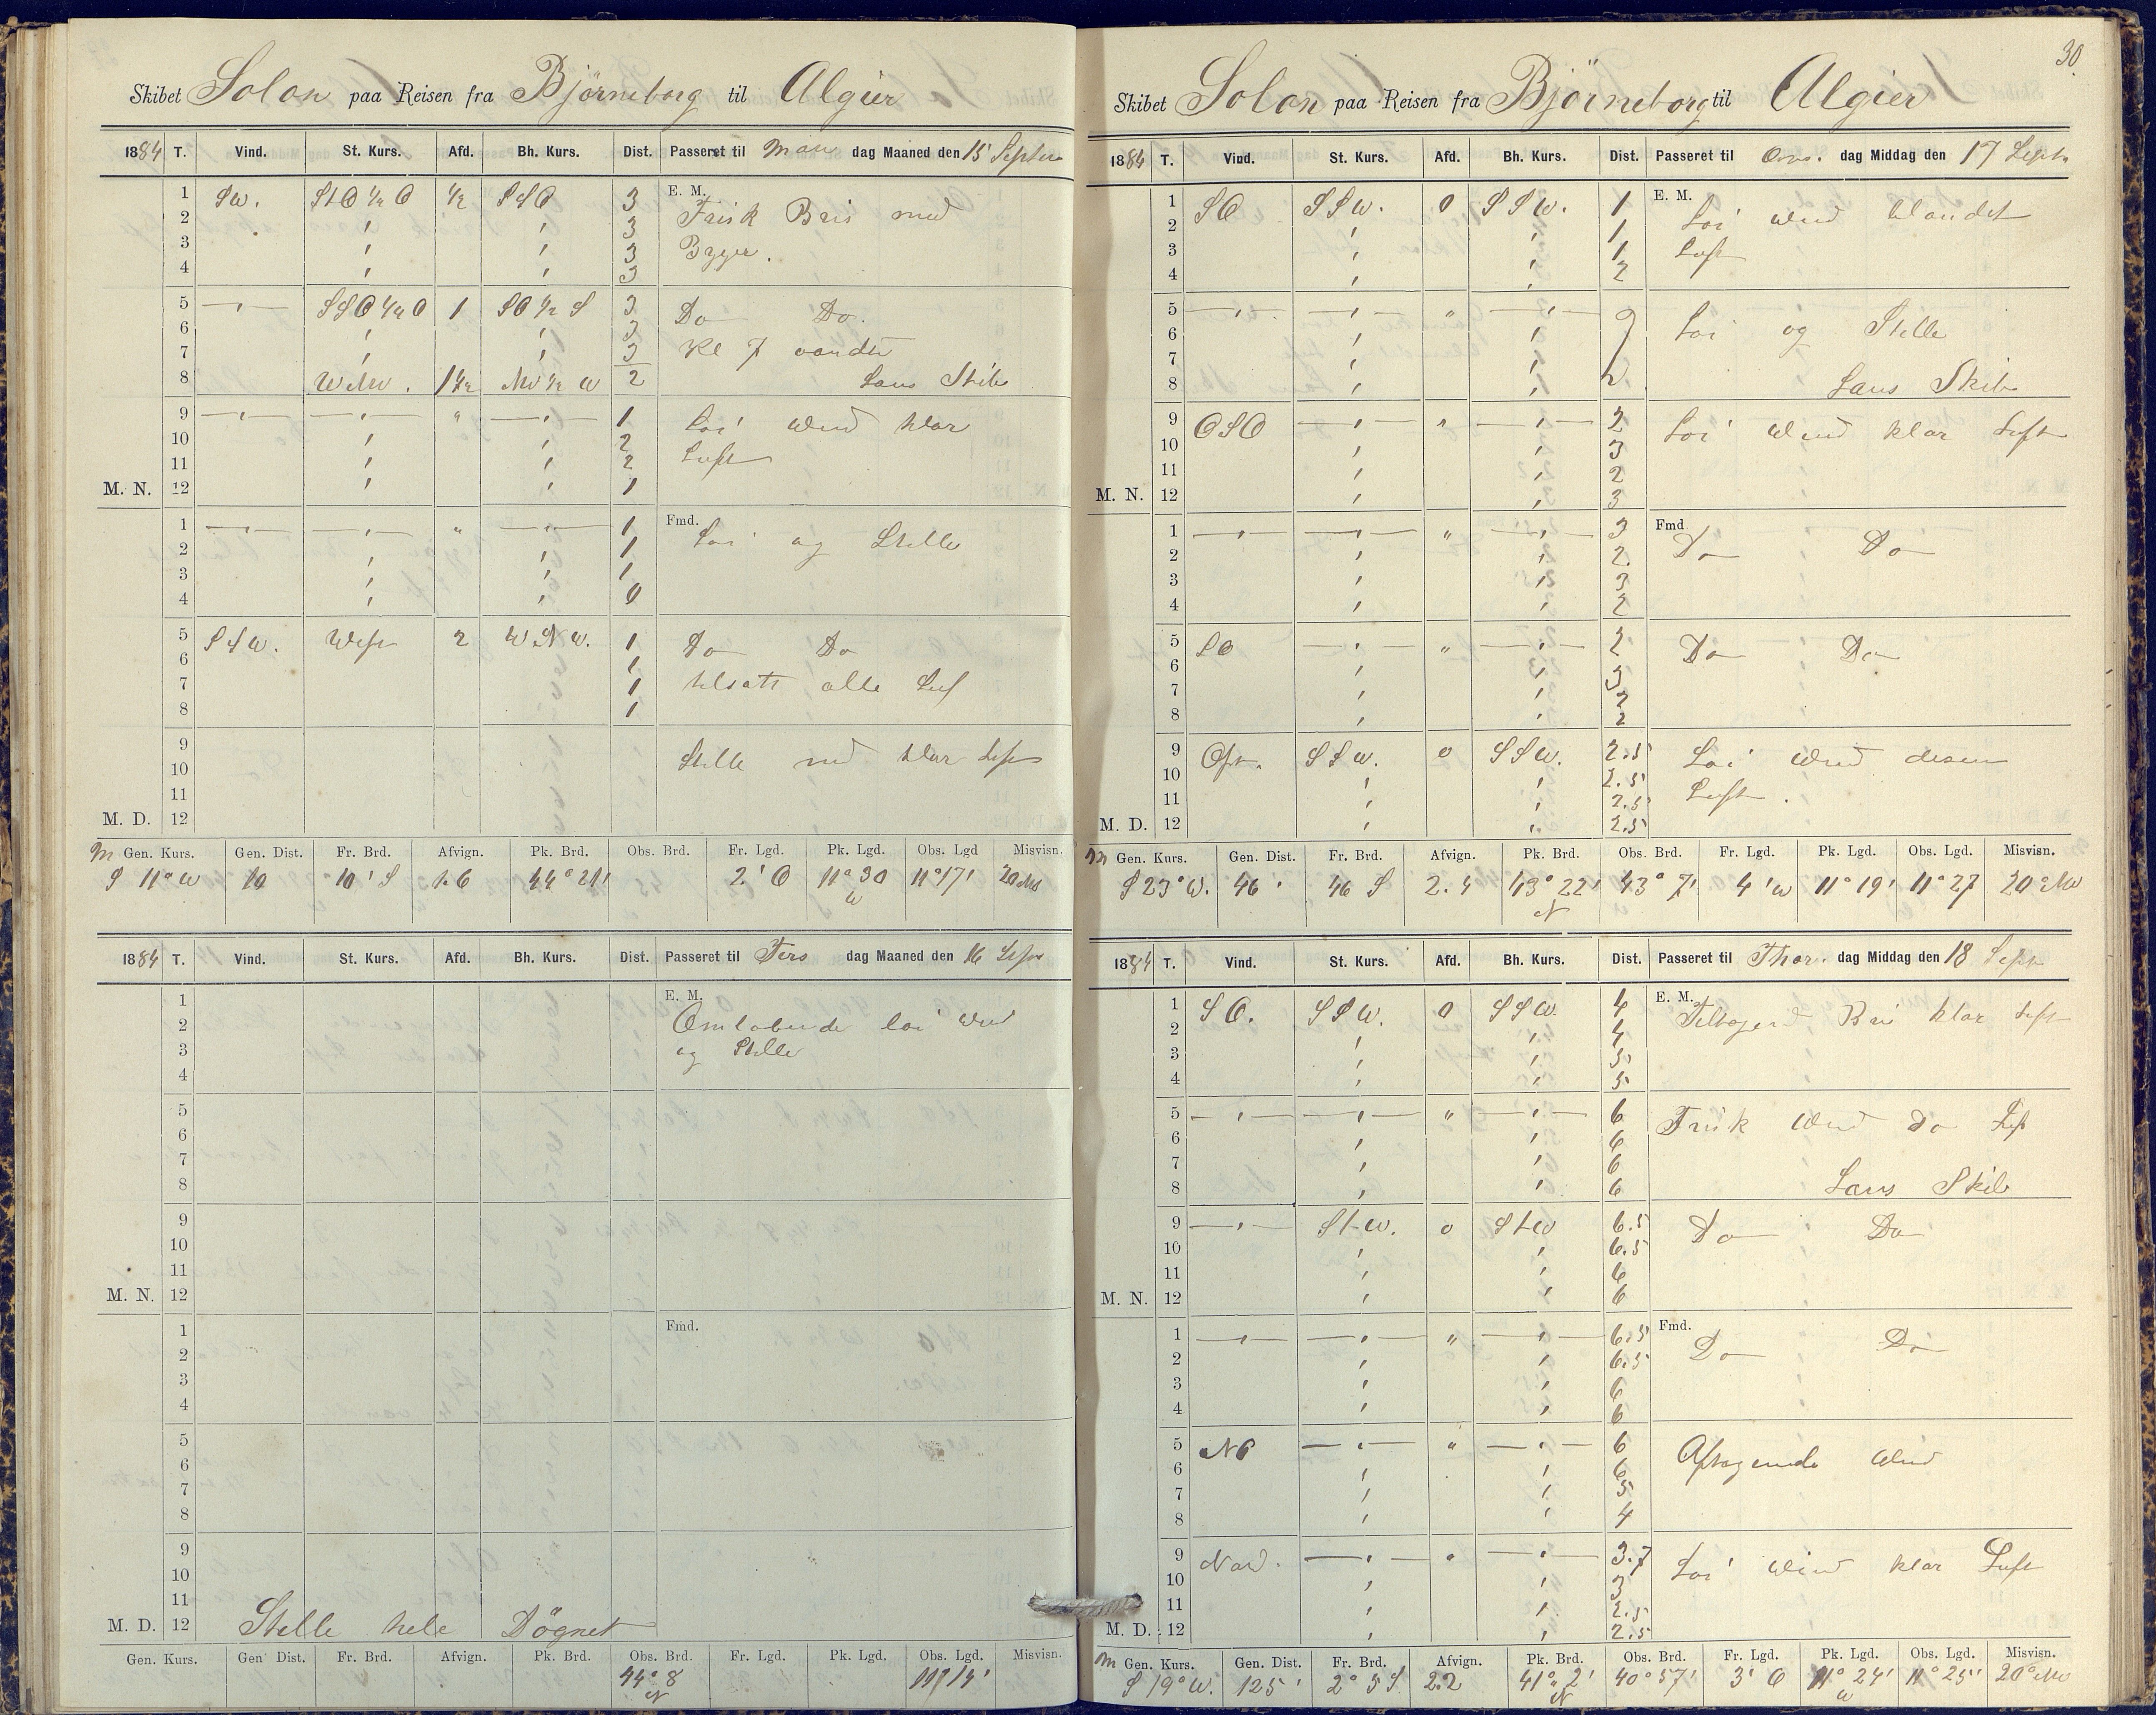 Skibet Solon paa Reisen fra Björneborg til Algier
1884 T. Vind. St. Kurs. Afd. Bh. Kurs. Dist. Passeret til Man dag Maaned den 15 Septbr
1 SW. StO ½ O ½ SSO 3 E. M. Frisk Bris med
2 3
3 3 Byger.
4 3
5 SSO ½ O 1 SO ½ S 3 Do Do.
6 3
7 3 Kl 7 vendte
8 WNW. 1½ NW ½ W 2 Lans Skib
9 " 1 Loi Wind klar
10 2
11 2 Luft
M. N. 12 1
1 " 1 Fmd. Loi og Stille
2 1
3 1
4 0
5 SSW. West 2 WNW. 1 Do Do
6 1
7 1 tilsatt alle
8 1
9 Stille med klar Luft
10
11
M. D. 12
M Gen. Kurs. Gen. Dist. Fr. Brd. Afvign. Pk. Brd. Obs. Brd. Fr. Lgd. Pk. Lgd. Obs. Lgd Misvisn.
S 11° W 10 10' S 1.6 44° 21' 2' O 11° 30 W 11° 17' 20 NW
1884 T. Vind. St. Kurs. Afd. Bh. Kurs. Dist. Passeret til Tirs dag Maaned den 16 Sept
1 E. M. Omlobende loi Wind
2
3 og Stille
4
5
6
7
8
9
10
11
M. N. 12
1 Fmd.
2
3
4
5
6
7
8
9
10
11
M. D. 12 Stille hele Dögnet
Gen. Kurs. Gen Dist. Fr. Brd. Afvign. Pk. Brd. Obs. Brd. Fr. Lgd. Pk. Lgd. Obs. Lgd. Misvisn.
44° 8 N 11° 14'
30
Skibet Solon paa Reisen fra Björneborg til Algier
1884 T. Vind. St. Kurs. Afd. Bh. Kurs. Dist. Passeret til Ons. dag Middag den 17 Septr
1 SO SSW. 0 SSW. 1 E. M. Loi Wind blandet
2 1
3 1 Luft
4 2
5 " Loi og Stille
6
7
8 2 Lans Skib
9 OSO " 2 Loi Wind klar Luft
10 3
11 2
M. N. 12 3
1 " 3 Fmd Do Do
2 2
3 3
4 2
5 SO " 2 Do Do
6 3
7 2
8 2
9 Ost. SSW. 0 SSW. 2.5 Loi Wind disen
10 2.5
11 2.5 Luft.
M. D. 12 2.5
M Gen. Kurs. Gen. Dist. Fr. Brd. Afvign. Pk. Brd. Obs. Brd. Fr. Lgd. Pk. Lgd. Obs. Lgd. Misvisn.
S 23° W. 46' 46 S 2.4 43° 22' N 43° 7' 4' W 11° 19' 11° 27 20° NW
1884 T. Vind. St. Kurs. Afd. Bh. Kurs. Dist. Passeret til Thors. dag Middag den 18 Sept
1 SO. SSW. 0 SSW. 4 E. M. Tiltagend Bris klar Luft
2 4
3 5
4 5
5 " 6 Frisk Wind Do Luft
6 6
7 6
8 6 Lans Skib
9 StW. 0 StW 6.5 Do Do
10 6.5
11 6
M. N. 12 6
1 " 6.5 Fmd. Do Do
2 6.5
3 6
4 6
5 NO " 6 Aftagende Wind
6 6
7 5
8 4
9 Nord. 3.7 Loi Wind klar Luft
10 3
11 2.5
M. D. 12 2.5
M Gen. Kurs. Gen. Dist. Fr. Brd. Afvign. Pk. Brd. Obs. Brd. Fr. Lgd. Pk. Lgd. Obs. Lgd. Misvisn.
S 19° W. 125' 2° 5 S 22 41° 2' N 40° 57' 3' O 11° 24' W 11° 25' 20° NW